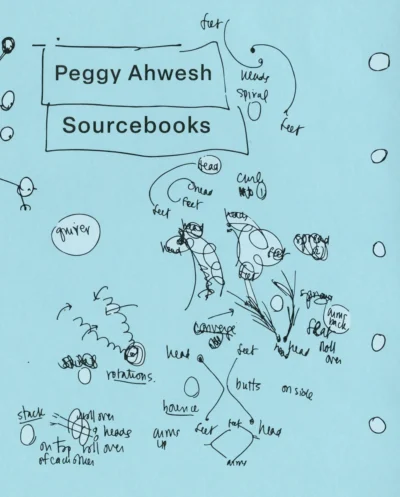 feet
Peggy Ahwesh
heads
spiral
Sourcebooks
feet
head
curl
head
feet
feet
head
heads
head
quiver
feet
spread
feet
arms
back
converge
float
roll
over
head
head
feet
rotations
butts
on side
bounce
stack
roll over
heads
arms
up
feet
feet
head
on top
roll over
of each other
arms